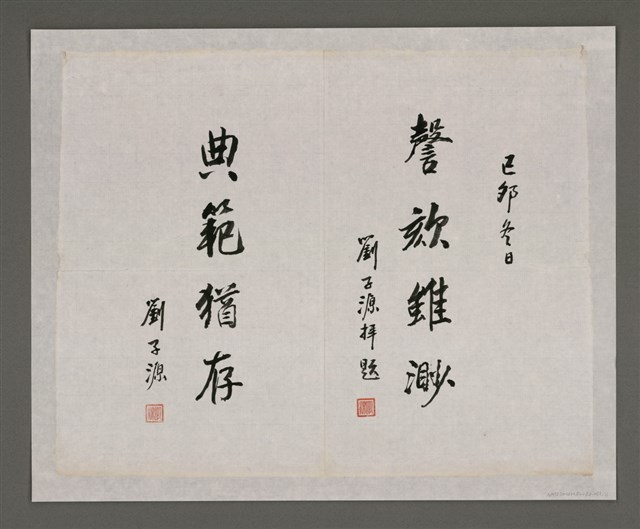 己卯冬日
謦欬雖渺
劉子源拜題
典範猶存
劉子源